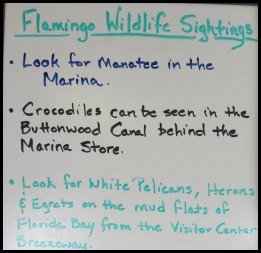 Flamingo Wildlife Sightings
• Look for Manatee in the
Marina.
• Crocodiles can be seen in the
Buttonwood Canal behind the
Marina Store.
• Look for White Pelicans, Herons
& Egrets on the mud flats of
Florida Bay from the Visitor Center
Breezeway.